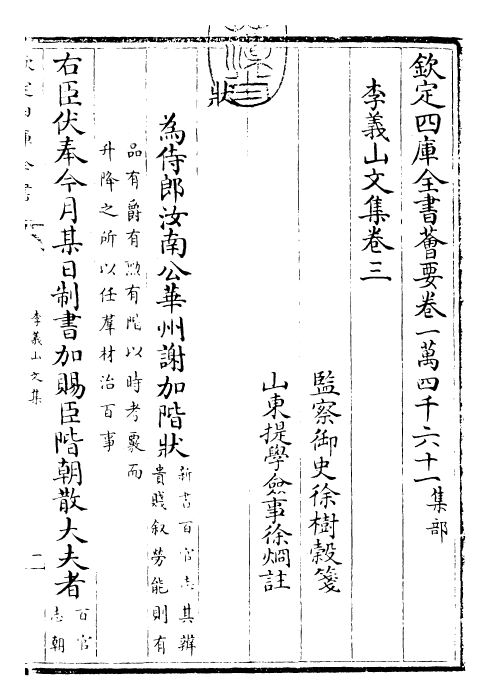 欽定四庫全書薈要卷一萬四千六十一集部
李義山文集卷三
監察御史徐樹穀箋
山東提學僉事徐炯註
狀
為侍郎汝南公華州謝加階狀新書百官志其辨
貴賤叙勞能則有
品有爵有勲有階以時考覈而
升降之所以任羣材治百事
右臣伏奉今月某日制書加賜臣階朝散大夫者百官
志朝
李義山文集
二